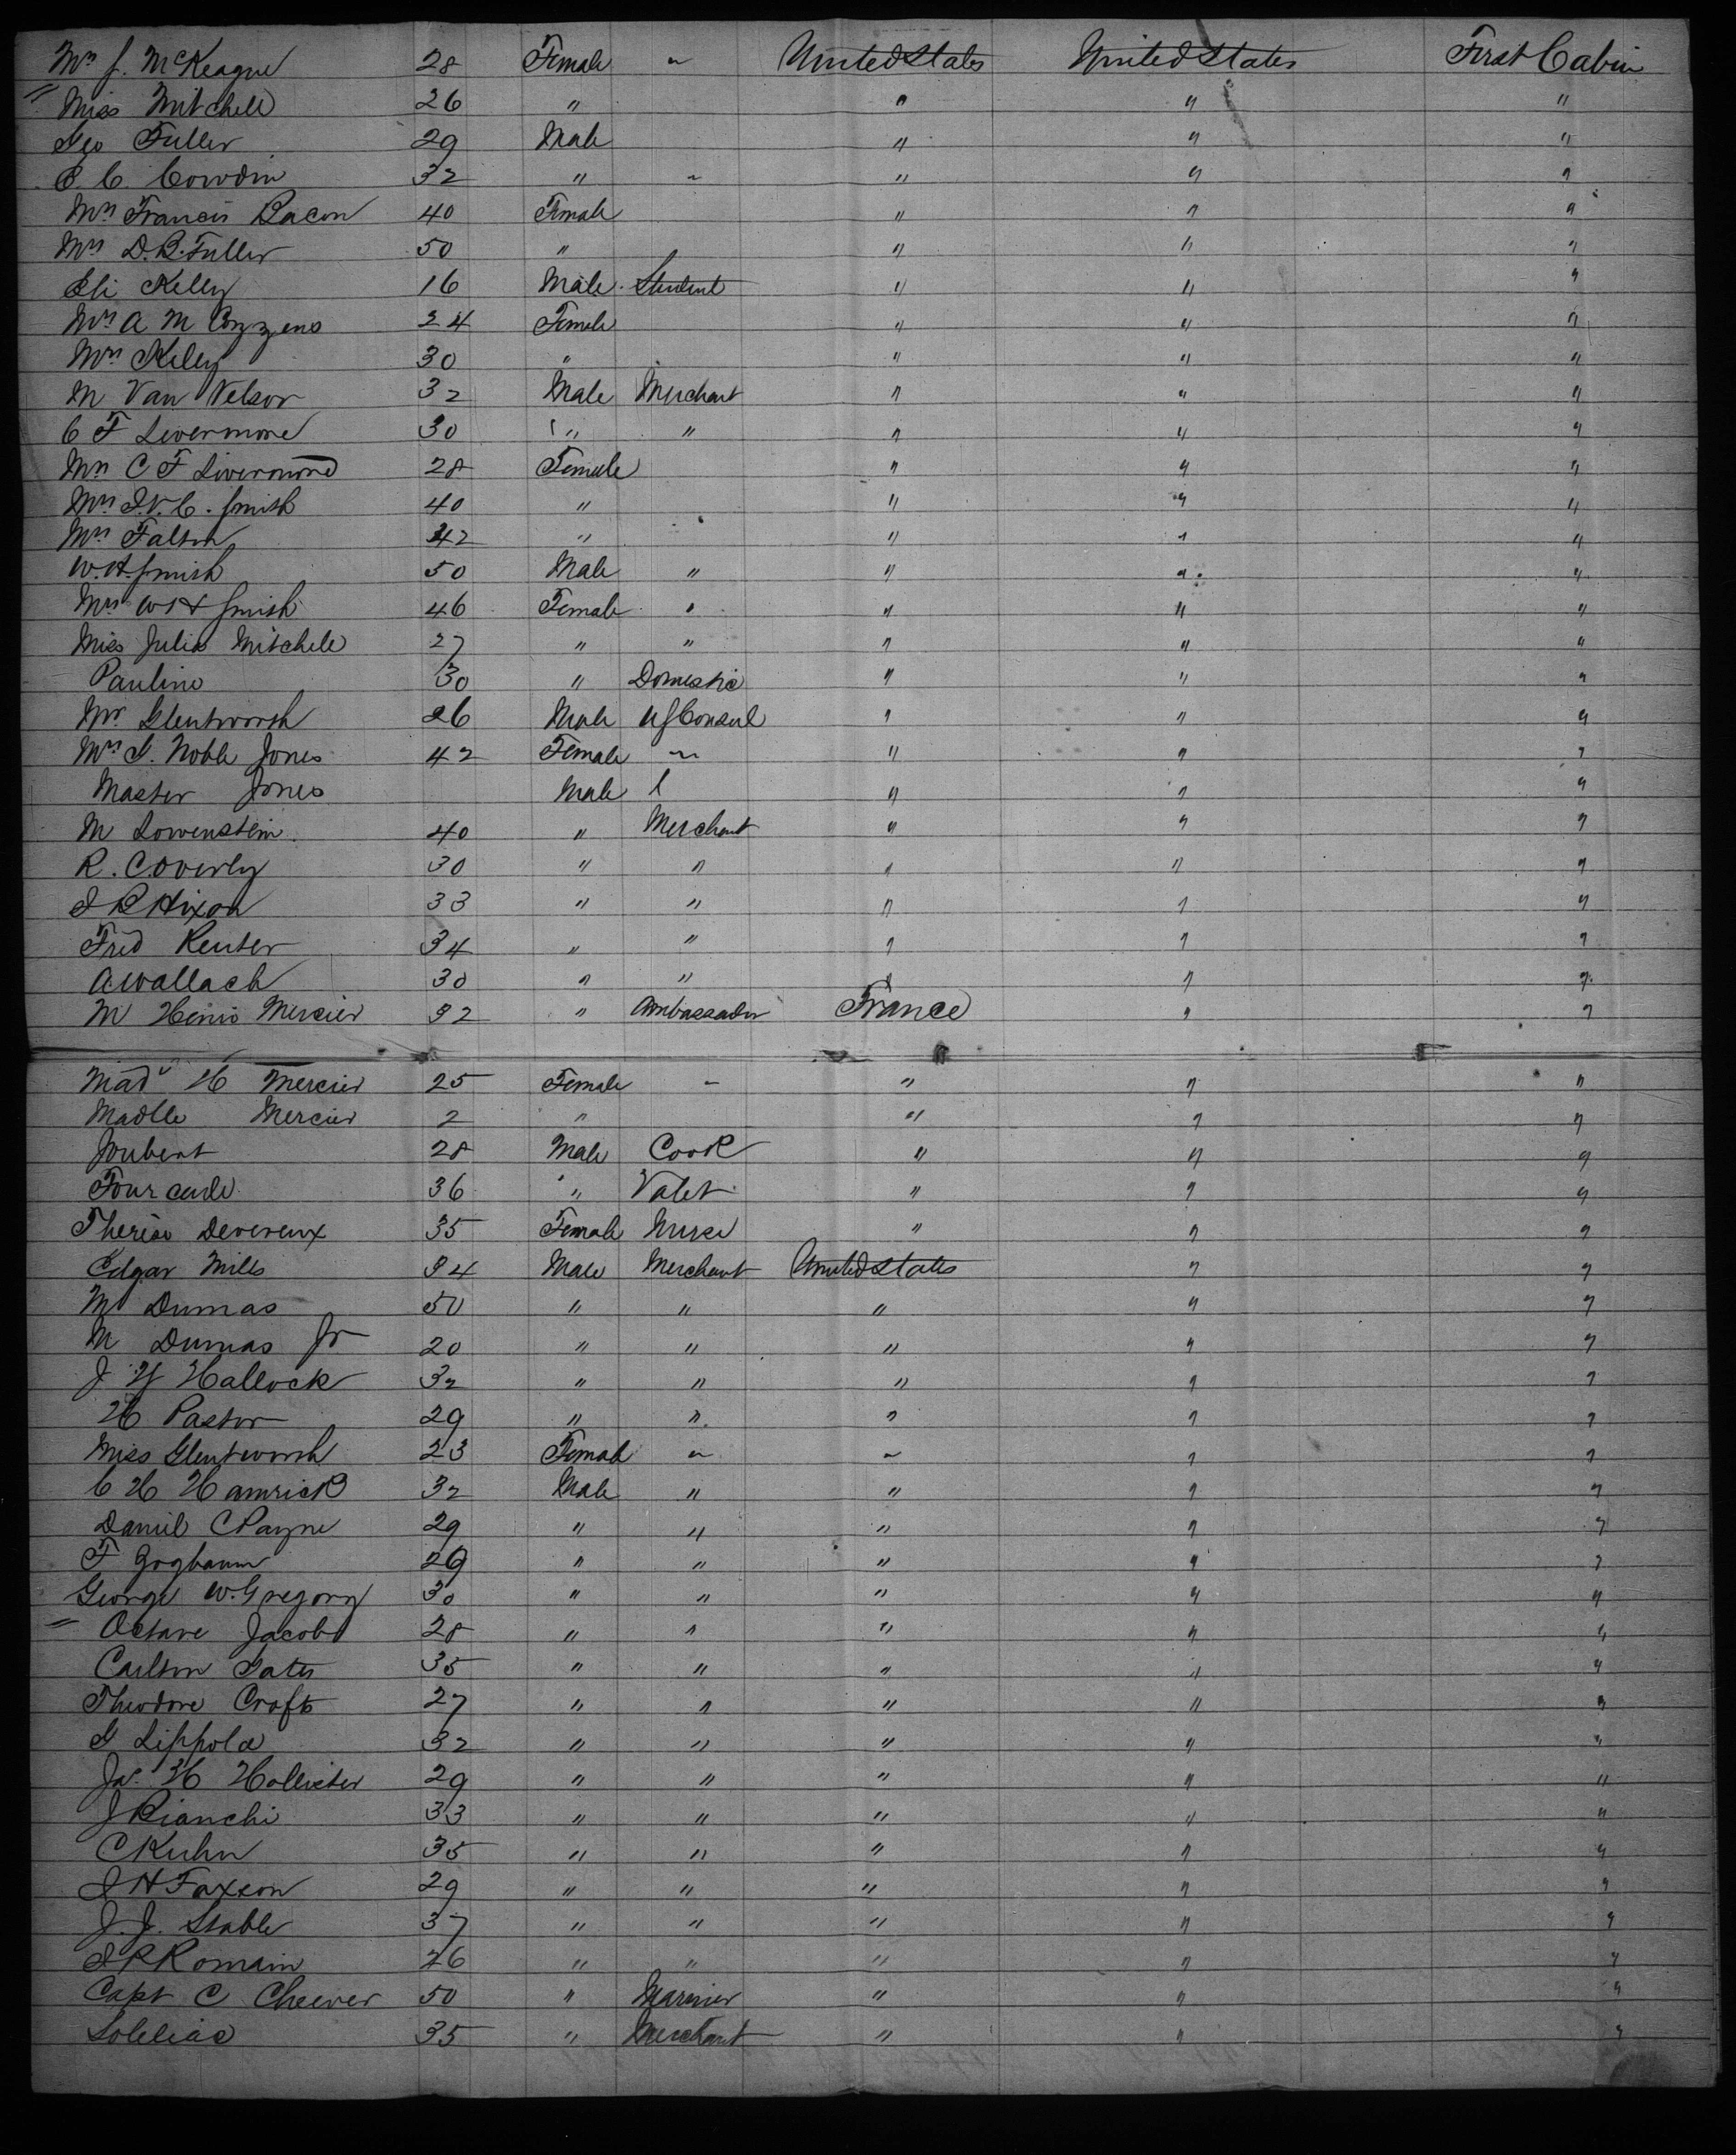 Mrs J. McKeague 28 Female " United States United States First Cabin
" Miss Mitchell 26 " " " "
Geo Fuller 29 Male " " "
E. C. Cowdin 32 " " " " "
Mrs Francis Bacon 40 Female " " "
Mrs D. B. Fuller 50 " " " "
Eli Kelly 16 Male Student " " "
Mrs A M Cozzens 24 Female " " "
Mrs Kelly 30 " " " "
M Van Nelson 32 Male Merchant " " "
C F Livermore 30 " " " " "
Mrs C F Livermore 28 Female " " "
Mrs J. V. C. Smith 40 " " " "
Mrs Falton 42 " " " "
W. H. Smith 50 Male " " " "
Mrs W H Smith 46 Female " " " "
Miss Julia Mitchell 27 " " " " "
Pauline 30 " Domestic " " "
Mr Glentworth 26 Male US Consul " " "
Mrs G. Noble Jones 42 Female " " " "
Master Jones Male " " "
M Lowenstein 40 " Merchant " " "
R. Coverly 30 " " " " "
J B Hixon 33 " " " " "
Fred Reuter 34 " " " " "
A Wallach 30 " " " " "
M Henri Mercier 32 " Ambassador France " "
Made H Mercier 25 Female " " " "
Madlle Mercier 2 " " " "
Joubert 28 Male Cook " " "
Fourcade 36 " Valet " " "
Therese Devereux 35 Female Nurse " " "
Edgar Mills 34 Male Merchant United States " "
M Dumas 50 " " " " "
M Dumas Jr 20 " " " " "
J Y Hallock 32 " " " " "
H Pastor 29 " " " " "
Miss Glentworth 23 Female " " " "
C H Hamrick 32 Male " " " "
Daniel C Payne 29 " " " " "
F 29 " " " " "
George W. Gregory 30 " " " " "
" Octave Jacob 28 " " " " "
Carlton Gates 35 " " " " "
Theodore Crofts 27 " " " " "
G Lippold 32 " " " " "
Jas. H Hollister 29 " " " " "
J Bianchi 33 " " " " "
C Kuhn 35 " " " " "
J H Faxson 29 " " " " "
J. J. Stable 37 " " " " "
J R Romain 26 " " " " "
Capt C Cheever 50 " Mariner " " "
Soleliac 35 " Merchant " " "